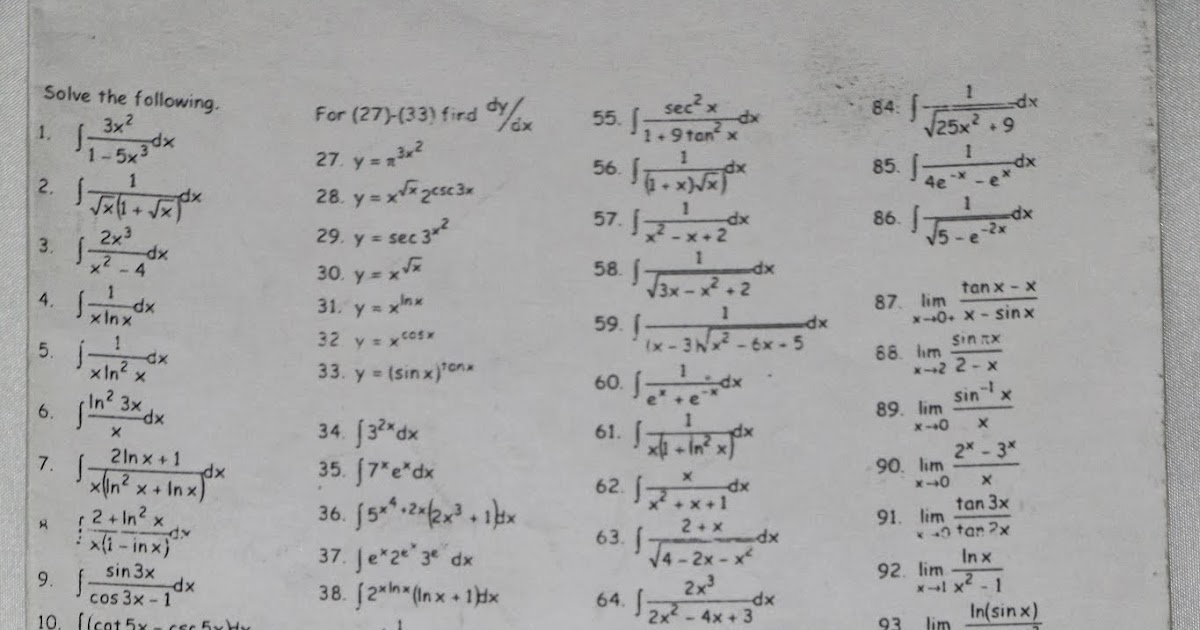 Solve the following.
1. ∫ 3x²/(1 - 5x³) dx
2. ∫ 1/(√x(1 + √x)) dx
3. ∫ 2x³/(x² - 4) dx
4. ∫ 1/(xlnx) dx
5. ∫ 1/(xln² x) dx
6. ∫ ln² 3x/x dx
7. ∫ (2lnx + 1)/(x(ln² x + lnx)) dx
8 ∫ (2 + ln² x)/(x(1 - lnx)) dx
9. ∫ sin3x/(cos3x - 1) dx
10. ∫(cot5x - csc5x)dx
For (27)-(33) find dy/dx
27. y = π^(3x²)
28. y = x^(√x) 2^(csc3x)
29. y = sec 3^(x²)
30. y = x^(√x)
31. y = x^(lnx)
32 y = x^(cosx)
33. y = (sinx)^(tanx)
34. ∫3^(2x)dx
35. ∫7^x e^x dx
36. ∫5^(x⁴+2x)(2x³ + 1)dx
37. ∫e^x 2^(e^x) 3^(e^x) dx
38. ∫2^(xlnx)(lnx + 1)dx
55. ∫ sec² x/(1 + 9tan² x) dx
56. ∫ 1/((1 + x)√x) dx
57. ∫ 1/(x² - x + 2) dx
58. ∫ 1/√(3x - x² + 2) dx
59. ∫ 1/((x - 3)√(x² - 6x - 5)) dx
60. ∫ 1/(e^x + e^(-x)) dx
61. ∫ 1/(x(1 + ln² x)) dx
62. ∫ x/(x² + x + 1) dx
63. ∫ (2 + x)/√(4 - 2x - x²) dx
64. ∫ 2x³/(2x² - 4x + 3) dx
84. ∫ 1/√(25x² + 9) dx
85. ∫ 1/(4e^(-x) - e^x) dx
86. ∫ 1/√(5 - e^(-2x)) dx
87. lim x→0+ (tanx - x)/(x - sinx)
88. lim x→2 sinπx/(2 - x)
89. lim x→0 sin⁻¹ x/x
90. lim x→0 (2^x - 3^x)/x
91. lim x→0 tan3x/tan2x
92. lim x→1 lnx/(x² - 1)
93 lim ln(sinx)